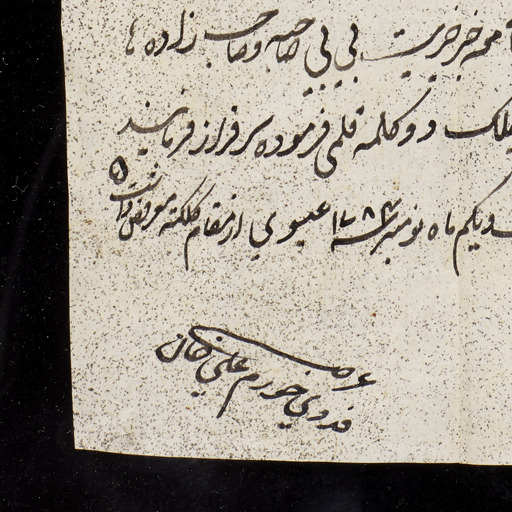 معه خبر خیریت بی بی صاحبه و صاحب زاده ها
دو کلمه قلمی فرموده سرفراز فرمایند
یکم ماه نومبر سنه ۱۷۸۴ عیسوی از مقام کلکته معروض داشت
عرضی
فدوی خورم علی خان